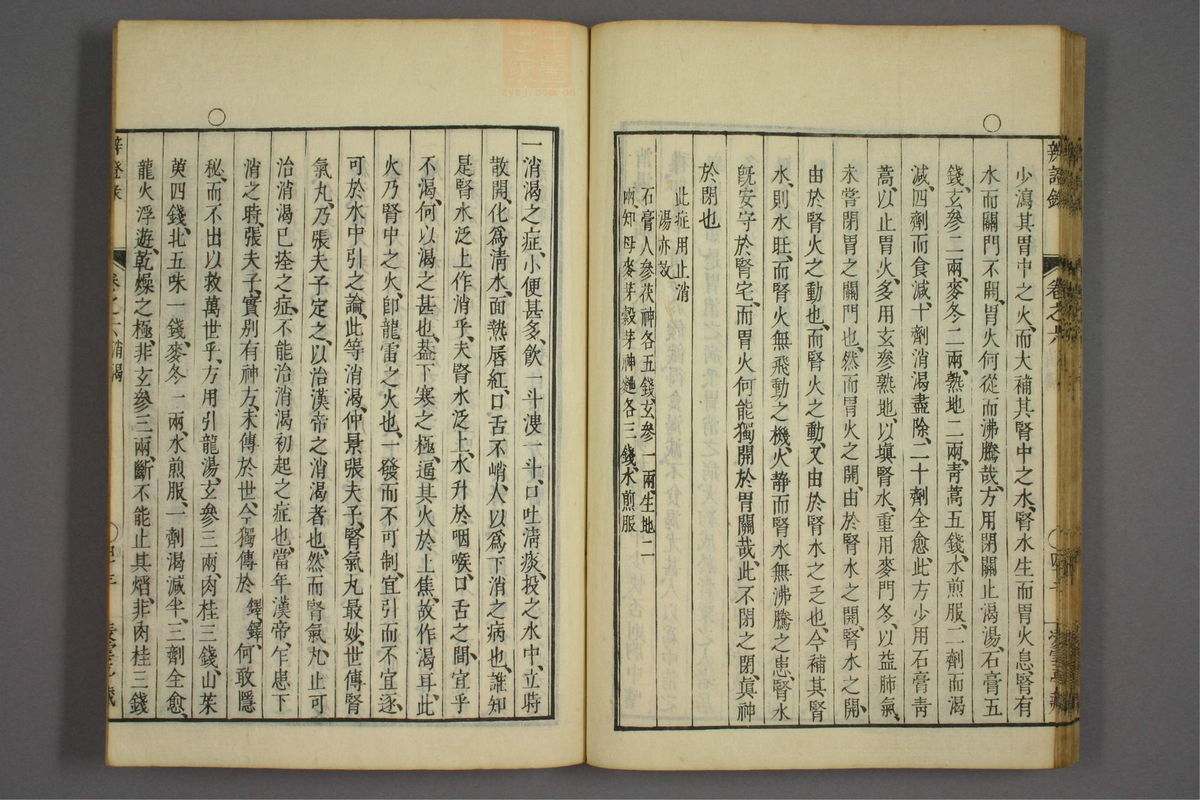 辨證錄 卷之六
少瀉其胃中之火、而大補其腎中之水、腎水生而胃火息、腎有
水而關門不開、胃火何從而沸騰哉、方用閉關止渴湯、石膏五
錢、玄參二兩、麥冬二兩、熟地二兩、青蒿五錢、水煎服、二劑而渴
減、四劑而食減、十劑消渴盡除、二十劑全愈、此方少用石膏青
蒿、以止胃火、多用玄參熟地、以塡腎水、重用麥門冬、以益肺氣、
未嘗閉胃之關門也、然而胃火之開、由於腎水之開、腎水之開、
由於腎火之動也、而腎火之動、又由於腎水之乏也、今補其腎
水、則水旺、而腎火無飛動之機、火静而腎水無沸騰之患、腎水
旣安守於腎宅、而胃火何能獨開於胃關哉、此不閉之閉、眞神
於閉也
此症用止消
湯亦效
石膏人參茯神各五錢、玄參一兩、生地二
兩、知母麥芽穀芽神麯各三錢、水煎服
一消渴之症、小便甚多、飲一斗溲一斗、口吐淸痰、投之水中、立時
散開、化爲淸水、面熱唇紅、口舌不峭、人以爲下消之病也、誰知
是腎水泛上作消乎、夫腎水泛上、水升於咽喉、口舌之間、宜乎
不渴、何以渴之甚也、葢下寒之極、逼其火於上焦、故作渴耳、此
火乃腎中之火、卽龍雷之火也、一發而不可制、宜引而不宜逐、
可於水中引之論、此等消渴、仲景張夫子、腎氣丸最妙、世傳腎
氣丸、乃張夫子定之、以治漢帝之消渴者也、然而腎氣丸、止可
治消渴已痊之症、不能治消渴初起之症也、當年漢帝、乍患下
消之時、張夫子、實別有神方、未傳於世、今獨傳於 鐸、鐸、何敢隱
秘、而不出以救萬世乎、方用引龍湯、玄參三兩、肉桂三錢、山茱
萸四錢、北五味一錢、麥冬一兩、水煎服、一劑渴減半、三劑全愈、
龍火浮遊、乾燥之極、非玄參三兩、斷不能止其熖、非肉桂三錢
卷之六消渴